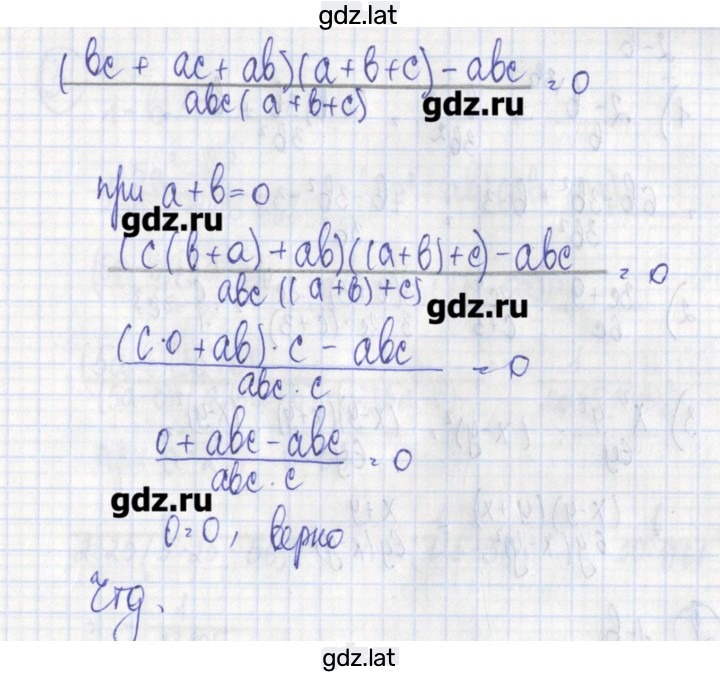 gdz.lat
(вc + ac + aв)(a+в+c) - aвc / aвc(a+в+c) = 0
gdz.ru
при a+в=0
gdz.ru
(c(в+a)+aв)((a+в)+c)-aвc / aвc((a+в)+c) = 0
gdz.ru
(c·0+aв)·c - aвc / aвc·c = 0
0+aвc-aвc / aвc·c = 0
gdz.ru
0=0, верно
Чтд.
gdz.lat